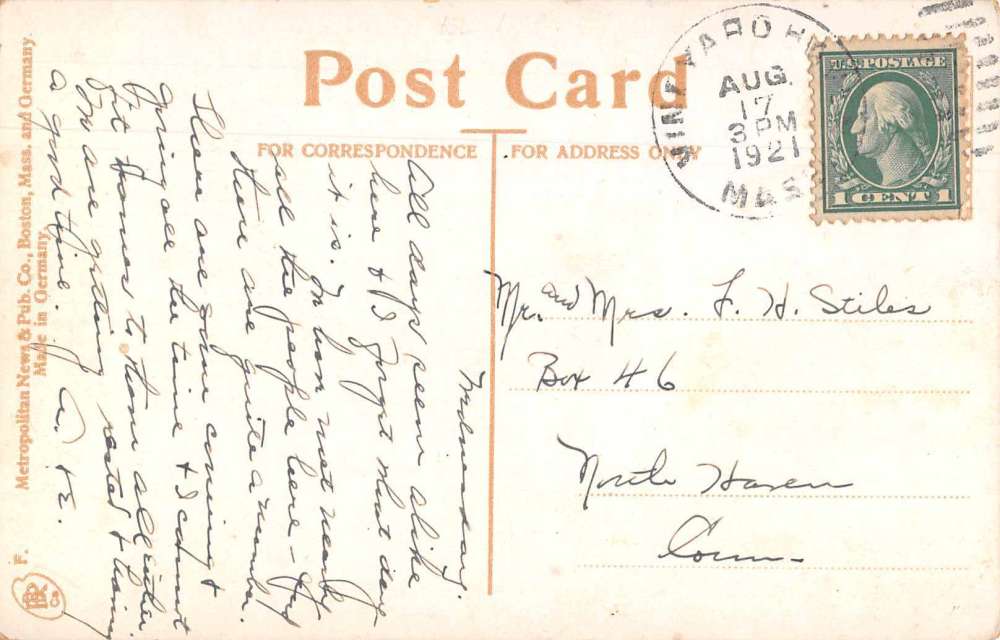 Post Card
FOR CORRESPONDENCE
FOR ADDRESS ONLY
VINEYARD HA
AUG
17
3 PM
1921
MASS
U.S. POSTAGE
1 CENT 1
Wednesday.
All days seem alike
here & I forget what day
it is. I have met nearly
all the people here - And
there are quite a number.
There are some coming &
going all the time & I cannot
fit names to them all either
We are getting rested & having
a good time.
Mr. and Mrs. F. H. Stiles
Box 46
North Haven
Conn-
Metropolitan News & Pub. Co., Boston, Mass. and Germany.
Made in Germany.
F.
Co